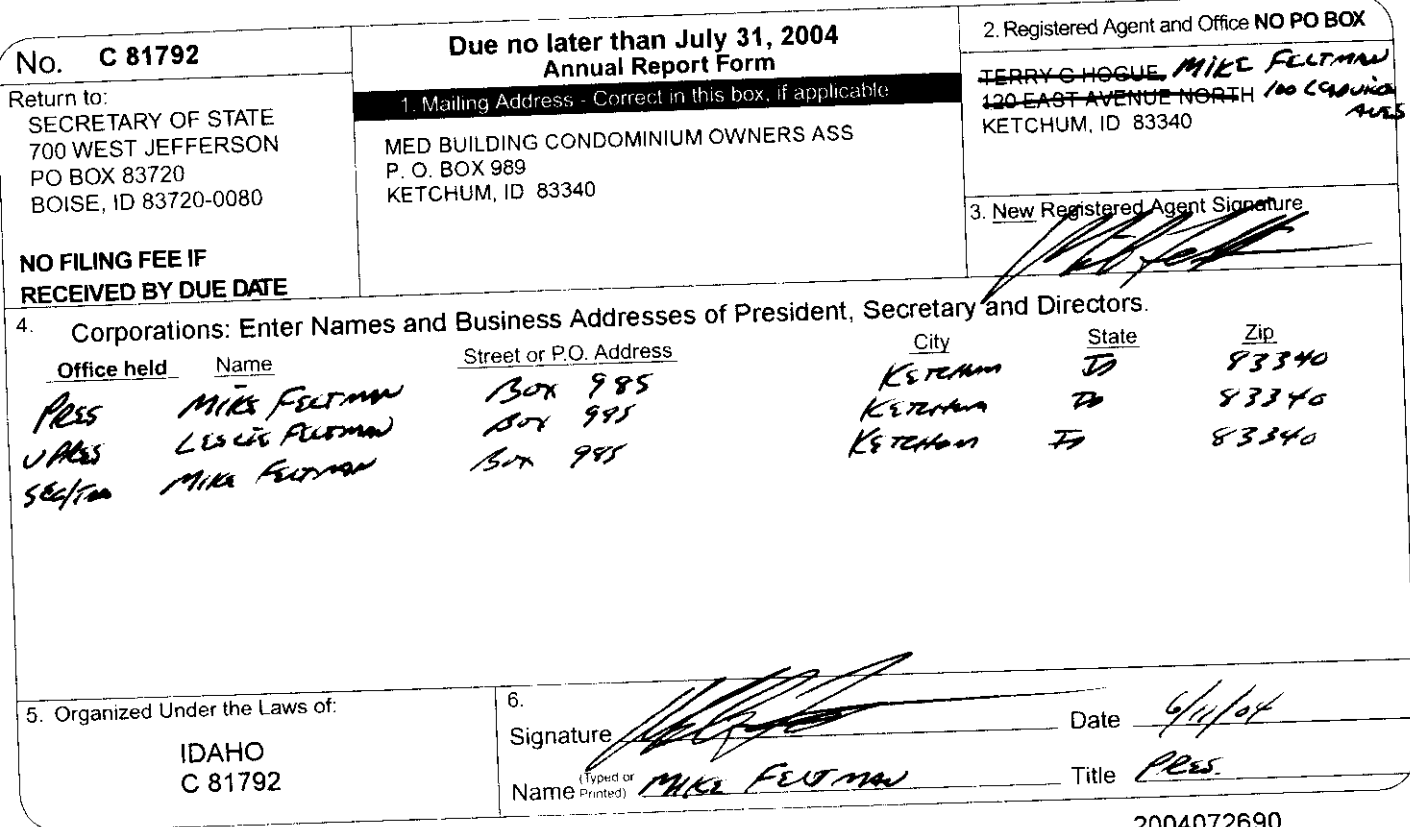 No. C 81792
Return to:
SECRETARY OF STATE
700 WEST JEFFERSON
PO BOX 83720
BOISE, ID 83720-0080
NO FILING FEE IF
RECEIVED BY DUE DATE
Due no later than July 31, 2004
Annual Report Form
1. Mailing Address - Correct in this box, if applicable
MED BUILDING CONDOMINIUM OWNERS ASS
P. O. BOX 989
KETCHUM, ID 83340
2. Registered Agent and Office NO PO BOX
TERRY G HOGUE MIKE FELTMAN
120 EAST AVENUE NORTH 100
KETCHUM, ID 83340
3. New Registered Agent Signature
4. Corporations: Enter Names and Business Addresses of President, Secretary and Directors.
Office held Name Street or P.O. Address City State Zip
PRES MIKE FELTMAN BOX 985 KETCHUM ID 83340
V PRES LESLIE FELTMAN BOX KETCHUM ID 83340
SEC/ MIKE FELTMAN BOX KETCHUM ID 83340
5. Organized Under the Laws of:
IDAHO
C 81792
6.
Signature Date 6/11/04
Name (Typed or Printed) MIKE FELTMAN Title PRES.
2004072690